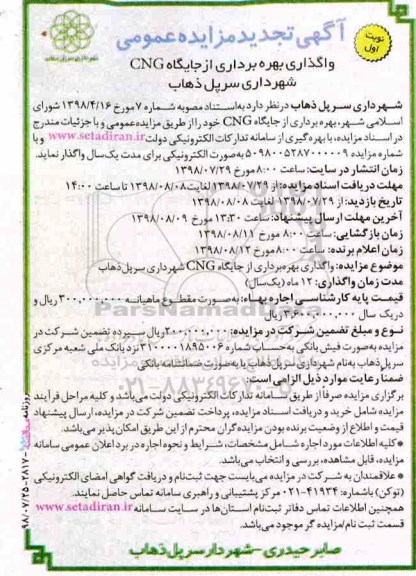 آگهی تجدید مزایده عمومی
نوبت اول
واگذاری بهره برداری از جایگاه CNG
شهرداری سرپل ذهاب
شهرداری سرپل ذهاب در نظر دارد به استناد مصوبه شماره ۷ مورخ ۱۳۹۸/۴/۱۶ شورای
اسلامی شهر، بهره برداری از جایگاه CNG خود را از طریق مزایده عمومی و با جزئیات مندرج
در اسناد مزایده، با بهره گیری از سامانه تدارکات الکترونیکی دولت www.setadiran.ir و با
شماره مزایده ۵۰۹۸۰۰۵۲۸۷۰۰۰۰۰۹ به صورت الکترونیکی برای مدت یک سال واگذار نماید.
زمان انتشار در سایت: ساعت ۸:۰۰ مورخ ۱۳۹۸/۰۷/۲۹
مهلت دریافت اسناد مزایده: از ۱۳۹۸/۰۷/۲۹ لغایت ۱۳۹۸/۰۸/۰۸ تا ساعت ۱۴:۰۰
تاریخ بازدید: از ۱۳۹۸/۰۷/۲۹ لغایت ۱۳۹۸/۰۸/۰۸
آخرین مهلت ارسال پیشنهاد: ساعت ۱۳:۳۰ مورخ ۱۳۹۸/۰۸/۰۹
زمان بازگشایی: ساعت ۸:۰۰ مورخ ۱۳۹۸/۰۸/۱۱
زمان اعلام برنده: ساعت ۸:۰۰ مورخ ۱۳۹۸/۰۸/۱۲
موضوع مزایده: واگذاری بهره برداری از جایگاه CNG شهرداری سرپل ذهاب
مدت زمان واگذاری: ۱۲ ماه (یک سال)
قیمت پایه کارشناسی اجاره بهاء: به صورت مقطوع ماهیانه ۳۰۰,۰۰۰,۰۰۰ ریال و
در یک سال ۳,۶۰۰,۰۰۰,۰۰۰ ریال
نوع و مبلغ تضمین شرکت در مزایده: ۲۰۰,۰۰۰,۰۰۰ ریال سپرده تضمین شرکت در
مزایده به صورت فیش بانکی به حساب شماره ۳۱۰۰۰۰۱۸۹۵۰۰۶ نزد بانک ملی شعبه مرکزی
سرپل ذهاب به نام شهرداری سرپل ذهاب یا به صورت ضمانتنامه بانکی
ضمنا رعایت موارد ذیل الزامی است:
برگزاری مزایده صرفا از طریق سامانه تدارکات الکترونیکی دولت می باشد و کلیه مراحل فرآیند
مزایده شامل خرید و دریافت اسناد مزایده، پرداخت تضمین شرکت در مزایده، ارسال پیشنهاد
قیمت و اطلاع از وضعیت برنده بودن مزایده گران محترم از این طریق امکان پذیر می باشد.
*کلیه اطلاعات مورد اجاره شامل مشخصات، شرایط و نحوه اجاره در برد اعلان عمومی سامانه
مزایده، قابل مشاهده، بررسی و انتخاب می باشد.
* علاقمندان به شرکت در مزایده می بایست جهت ثبت نام و دریافت گواهی امضای الکترونیکی
(توکن) با شماره: ۴۱۹۳۴-۰۲۱ مرکز پشتیبانی و راهبری سامانه تماس حاصل نمایند.
همچنین اطلاعات تماس دفاتر ثبت نام استان ها در سایت سامانه www.setadiran.ir
قسمت ثبت نام/مزایده گر موجود می باشد.
صابر حیدری - شهردار سرپل ذهاب
ParsNamadData